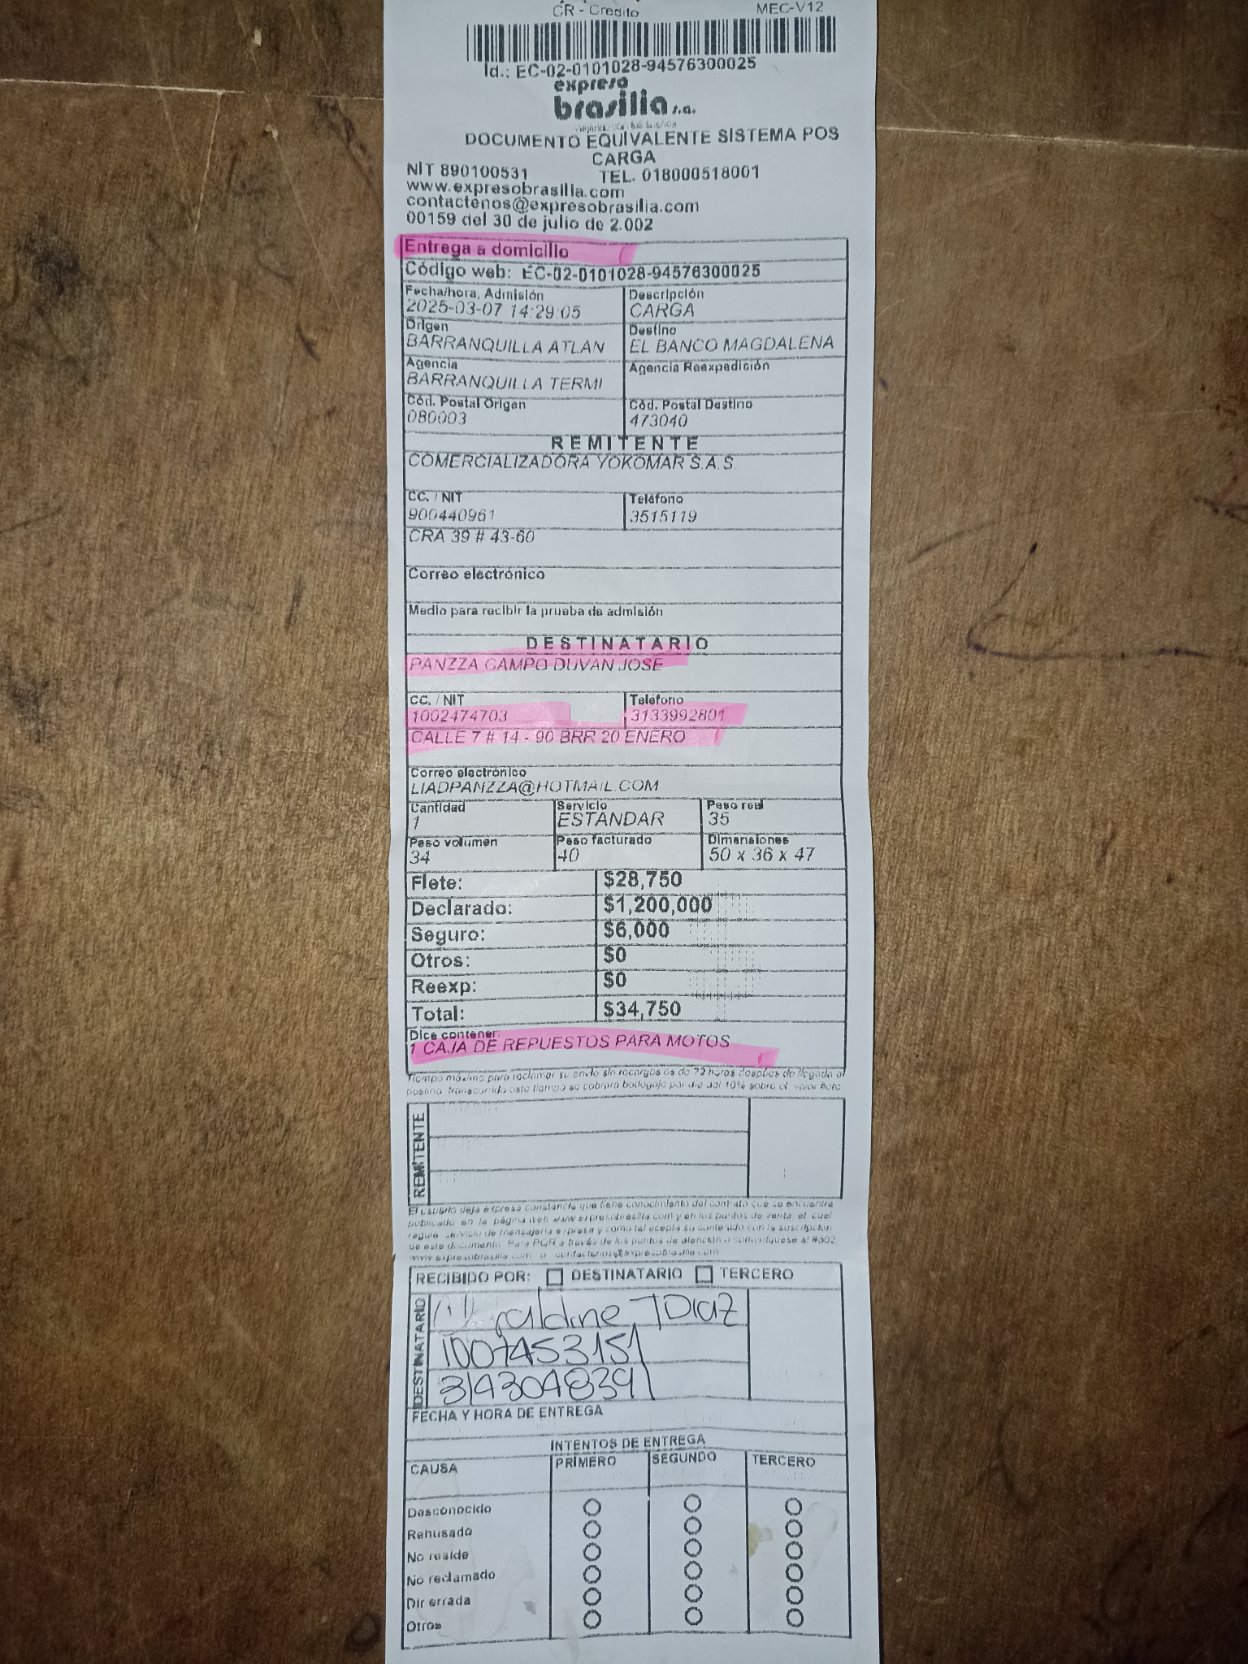 CR - Credito MEC-V12
Id.: EC-02-0101028-94576300025
expreso
brasilia s.a.
DOCUMENTO EQUIVALENTE SISTEMA POS
CARGA
NIT 890100531 TEL. 018000518001
www.expresobrasilia.com
contactenos@expresobrasilia.com
00159 del 30 de julio de 2.002
Entrega a domicilio
Código web: EC-02-0101028-94576300025
Fecha/hora, Admisión Descripción
2025-03-07 14:29:05 CARGA
Origen Destino
BARRANQUILLA ATLAN EL BANCO MAGDALENA
Agencia Agencia Reexpedición
BARRANQUILLA TERMI
Cód. Postal Origen Cód. Postal Destino
080003 473040
REMITENTE
COMERCIALIZADORA YOKOMAR S.A.S
CC. / NIT Teléfono
900440961 3515119
CRA 39 # 43-60
Correo electrónico
Medio para recibir la prueba de admisión
DESTINATARIO
PANZZA CAMPO DUVAN JOSE
CC. / NIT Teléfono
1002474703 3133992801
CALLE 7 # 14 - 90 BRR 20 ENERO
Correo electrónico
LIADPANZZA@HOTMAIL.COM
Cantidad Servicio Peso real
1 ESTANDAR 35
Peso volumen Peso facturado Dimensiones
34 40 50 x 36 x 47
Flete: $28,750
Declarado: $1,200,000
Seguro: $6,000
Otros: $0
Reexp: $0
Total: $34,750
Dice contener:
1 CAJA DE REPUESTOS PARA MOTOS
Tiempo máximo para reclamar su envío sin recargos es de 72 horas después de llegada al
destino, transcurrido este tiempo se cobrará bodegaje por día del 10% sobre el valor flete
REMITENTE
El usuario deja expresa constancia que tiene conocimiento del contrato que se encuentra
publicado en la página web www.expresobrasilia.com y en los puntos de venta, el cual
regula servicio de mensajería expresa y como tal acepta su contenido con la suscripción
de este documento. Para PQR a través de los puntos de atención o comuníquese al #502
www.expresobrasilia.com o contactenos@expresobrasilia.com
RECIBIDO POR: DESTINATARIO TERCERO
DESTINATARIO
TDiaz
1007453151
3143048391
FECHA Y HORA DE ENTREGA
INTENTOS DE ENTREGA
CAUSA PRIMERO SEGUNDO TERCERO
Desconocido
Rehusado
No reside
No reclamado
Dir errada
Otros